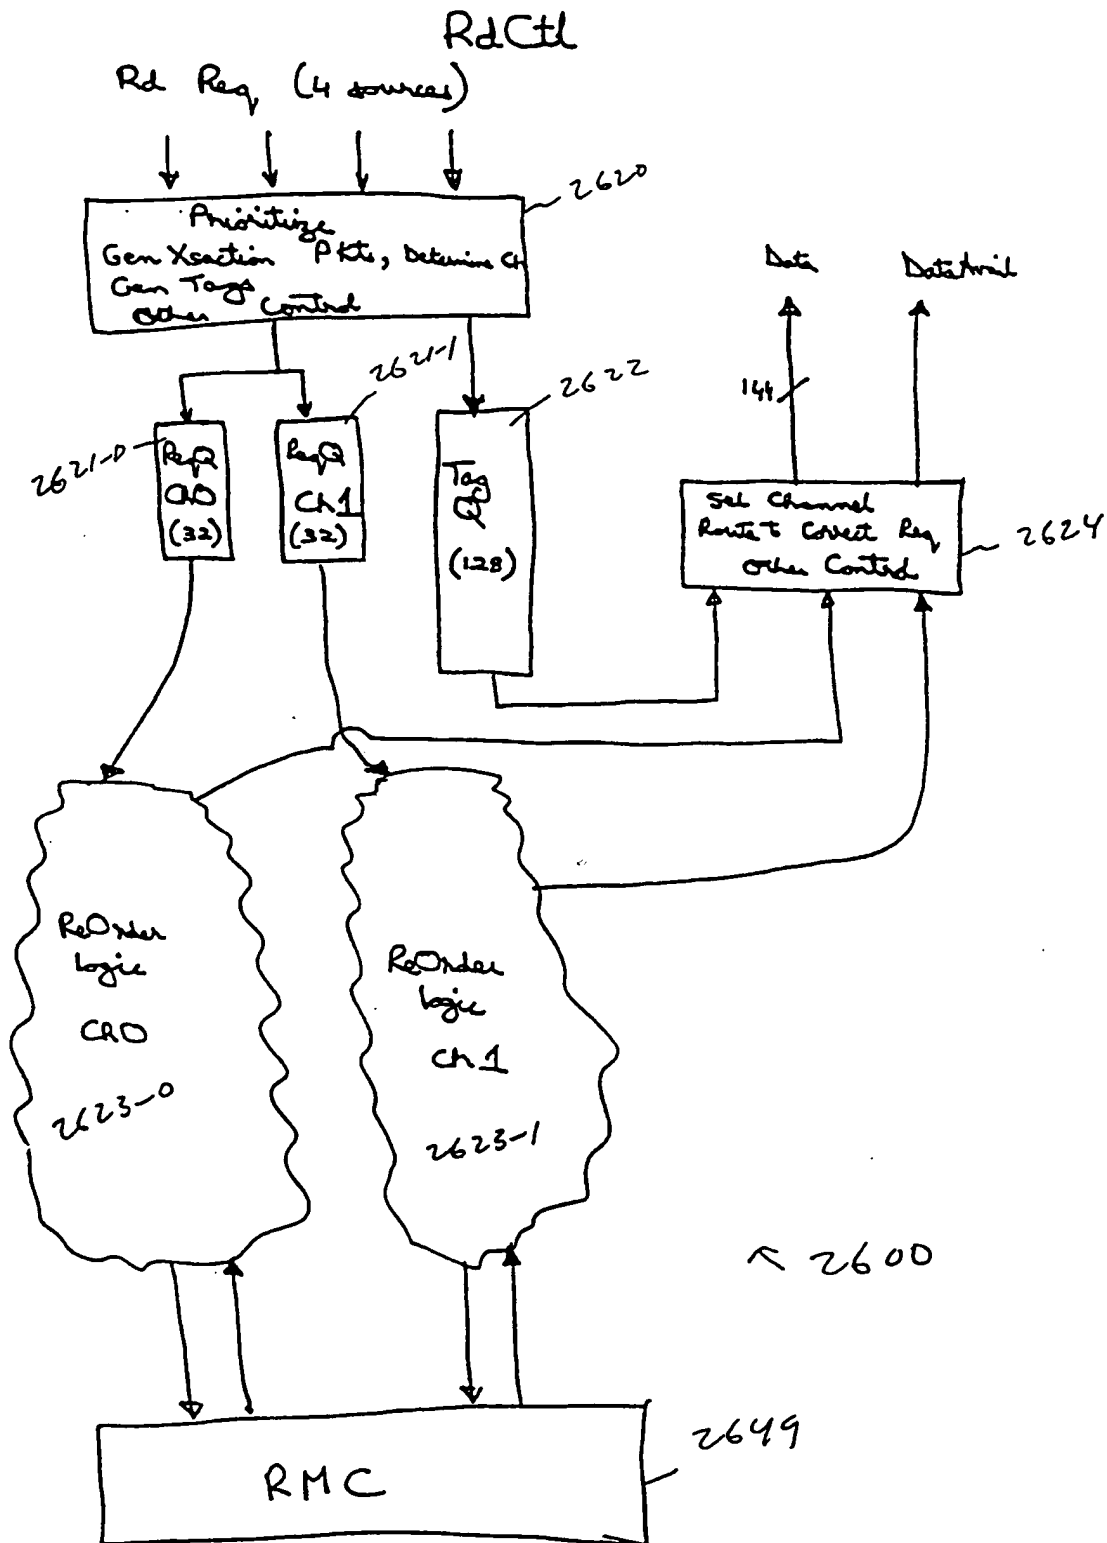 RdCtl
Rd Req (4 sources)
2620
Prioritize
Gen Xsaction Pkts, Determine Ch
Gen Tags
Other Control
Data
DataAvail
144
2621-0
2621-1
2622
ReqQ
Ch0
(32)
ReqQ
Ch1
(32)
Tag
Q
(128)
Sel Channel
Route to Correct Req
Other Control
2624
ReOrder
Logic
Ch0
2623-0
ReOrder
Logic
Ch1
2623-1
2600
RMC
2649